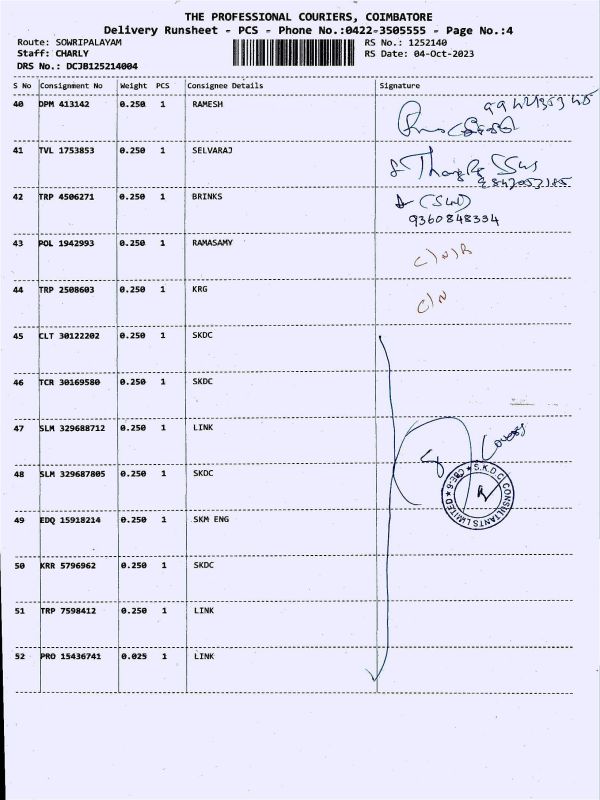 THE PROFESSIONAL COURIERS, COIMBATORE
Delivery Runsheet - PCS - Phone No.:0422-3505555 - Page No.:4
Route: SOWRIPALAYAM RS No.: 1252140
Staff: CHARLY RS Date: 04-Oct-2023
DRS No.: DCJB125214004
S No Consignment No Weight PCS Consignee Details Signature
40 DPM 413142 0.250 1 RAMESH
41 TVL 1753853 0.250 1 SELVARAJ
42 TRP 4506271 0.250 1 BRINKS
9360848334
43 POL 1942993 0.250 1 RAMASAMY C/N/R
44 TRP 2508603 0.250 1 KRG C/N
45 CLT 30122202 0.250 1 SKDC
46 TCR 30169580 0.250 1 SKDC
47 SLM 329688712 0.250 1 LINK
48 SLM 329687805 0.250 1 SKDC
S.K.D.C CONSULTANTS LIMITED ★ CBE-6 ★
49 EDQ 15918214 0.250 1 SKM ENG
50 KRR 5796962 0.250 1 SKDC
51 TRP 7598412 0.250 1 LINK
52 PRO 15436741 0.025 1 LINK